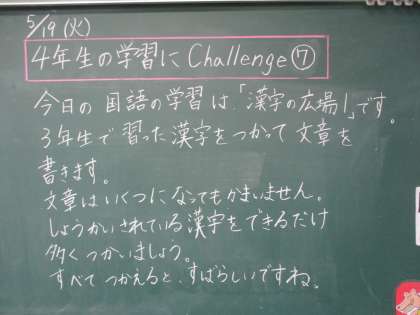 5/19(火)
4年生の学習にChallenge⑰
今日の国語の学習は、「漢字の広場1」です。
3年生で習った漢字をつかって文章を
書きます。
文章はいくつになってもかまいません。
しょうかいされている漢字をできるだけ
多くつかいましょう。
すべてつかえると、すばらしいですね。